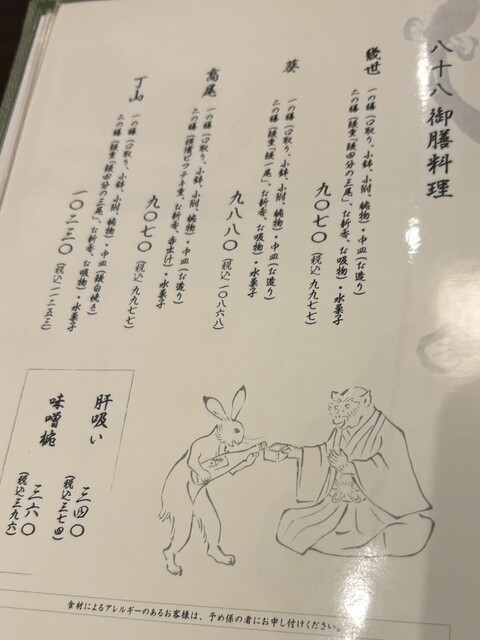 八十八御膳料理
幾世
一の膳（口取り、小鉢、小附、椀物）・中皿（お造り）
二の膳（鰻重「鰻四分の三尾」、お新香、お吸物）・水菓子
九〇七〇（税込 九九七七）
葵
一の膳（口取り、小鉢、小附、椀物）・中皿（お造り）
二の膳（鰻重「鰻一尾」、お新香、お吸物）・水菓子
九八八〇（税込 一〇八六八）
高尾
一の膳（口取り、小鉢、小附、椀物）・中皿（お造り）
お新香、香出汁）・水菓子
九〇七〇（税込 九九七七）
丁山
一の膳（口取り、小鉢、小附、椀物）・中皿（鰻白焼き）
二の膳（鰻重「鰻四分の三尾」、お新香、お吸物）・水菓子
一〇二三〇（税込一一二五三）
肝吸い
三四〇
（税込三七四）
味噌椀
三六〇
（税込三九六）
食材によるアレルギーのあるお客様は、予め係の者にお申し付けください。